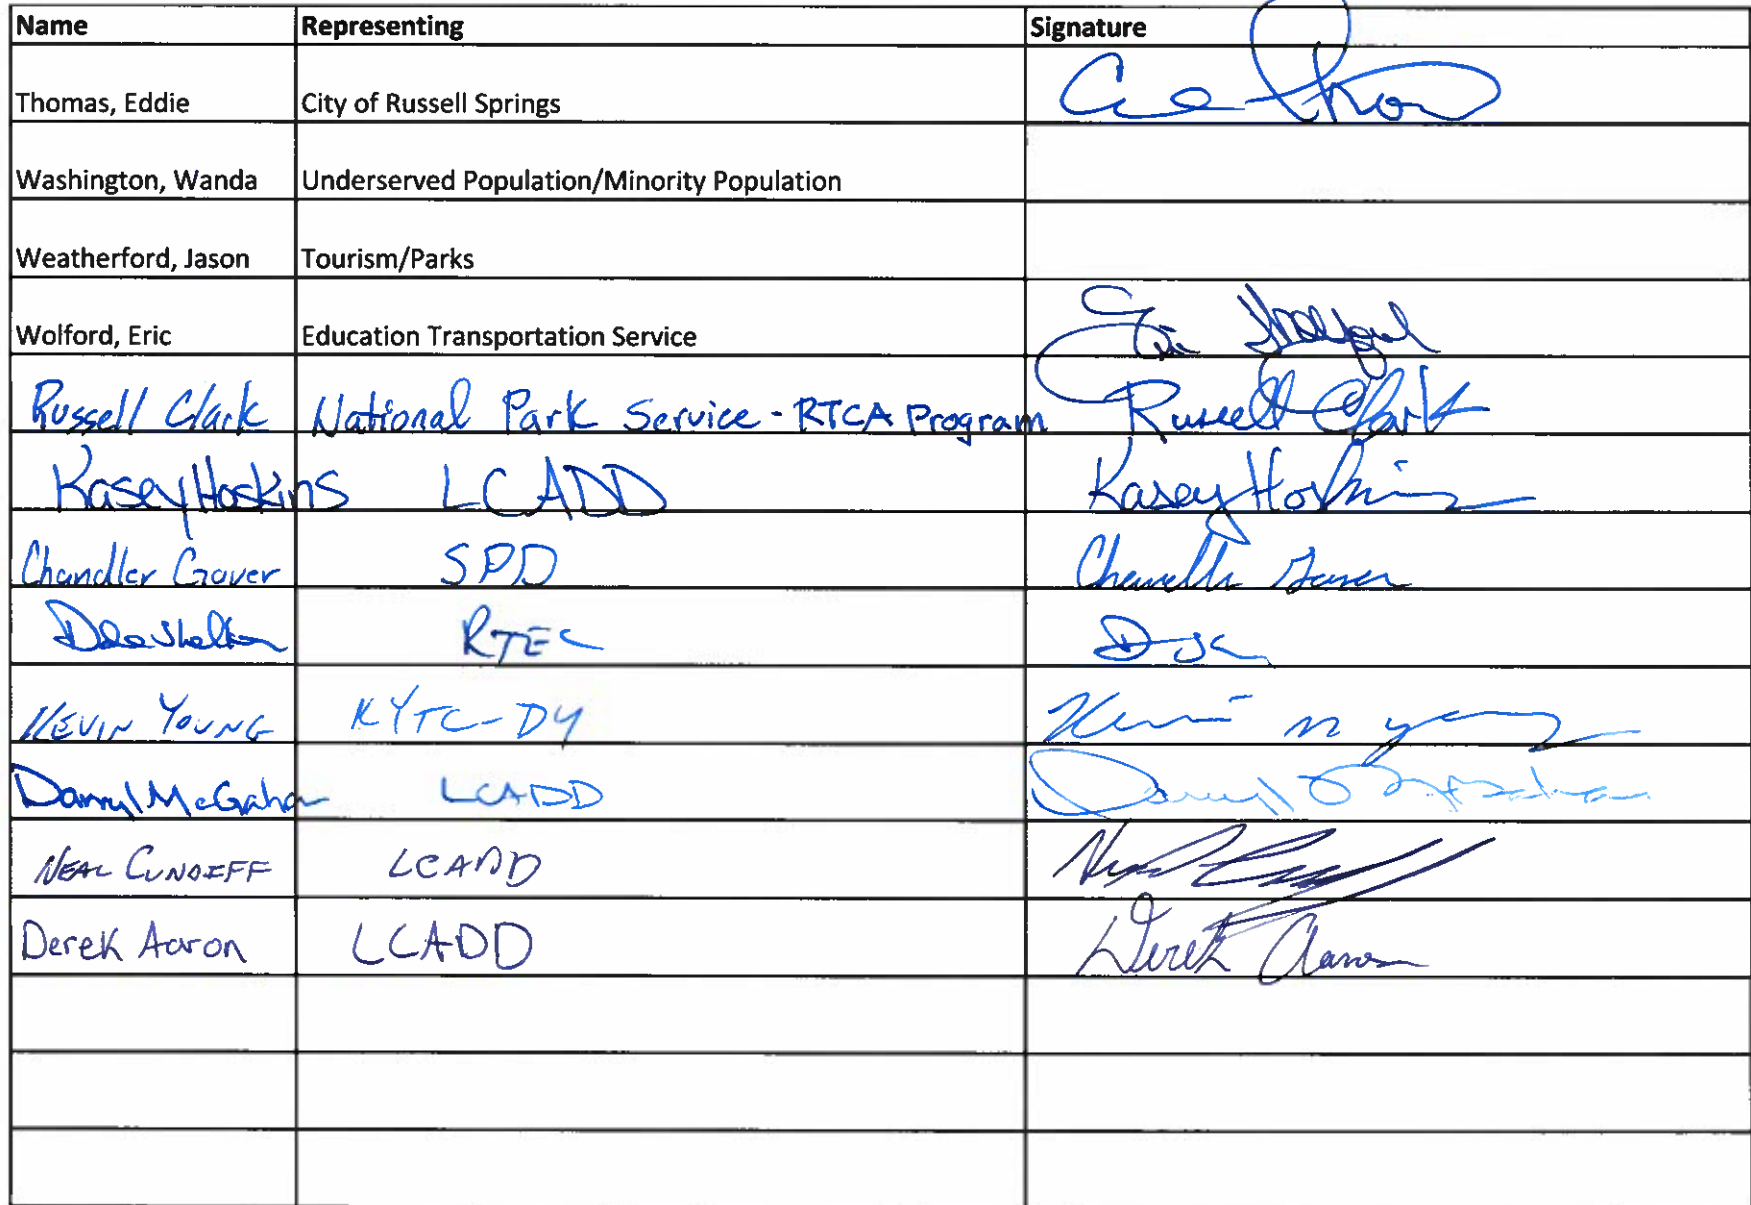 Name Representing Signature
Thomas, Eddie City of Russell Springs
Washington, Wanda Underserved Population/Minority Population
Weatherford, Jason Tourism/Parks
Wolford, Eric Education Transportation Service Eric Wolford
Russell Clark National Park Service - RTCA Program Russell Clark
Kasey Hoskins LCADD Kasey Hoskins
Chandler Gover SPD Chandler Gover
Shelton RTEC
KEVIN YOUNG KYTC-D4 Kevin N Young
Darryl McGaha LCADD Darryl McGaha
NEAL CUNDIFF LCADD Neal
Derek Aaron LCADD Derek Aaron